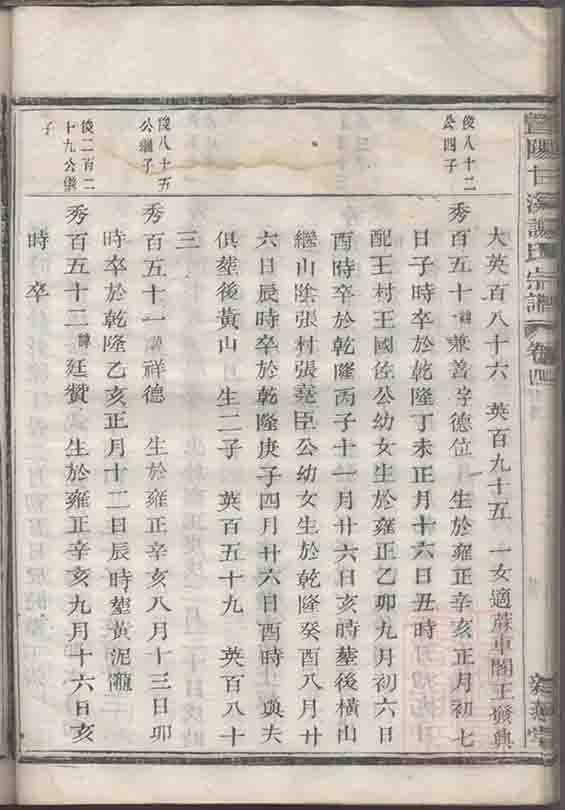 暨陽甘溪謝氏宗譜 卷四
大英百八十六 英百九十五 一女適蔴車閣王發興
俊八十二
公四子
秀百五十諱兼善字德位 生於雍正辛亥正月初七
日子時卒於乾隆丁未正月十六日丑時
配王村王國佐公幼女生於雍正乙卯九月初六日
酉時卒於乾隆丙子十一月廿六日亥時塟後橫山
繼山陰張村張堯臣公幼女生於乾隆癸酉八月廿
六日辰時卒於乾隆庚子四月廿六日酉時 與夫
俱塟後黃山 生二子 英百五十九 英百八十
三
俊八十五
公 子
秀百五十一諱祥德 生於雍正辛亥八月十三日卯
時卒於乾隆乙亥正月十二日辰時塟黃泥隴
俊二百二
十九公 
子
秀百五十二諱廷贊 生於雍正辛亥九月十六日亥
時 卒